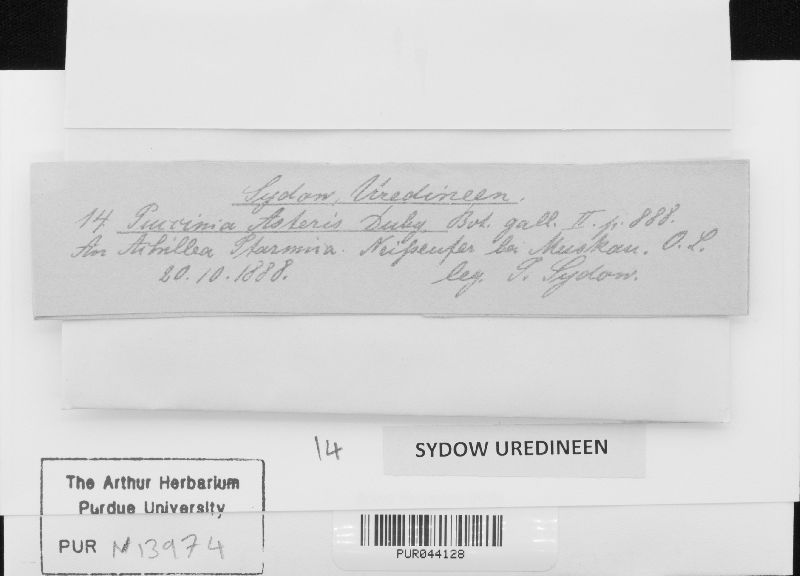 Sydow, Uredineen.
14 Puccinia Asteris Duby Bot. gall. II. p. 888.
An Achillea Ptarmica. Neißeufer bei Muskau. O. L.
20.10.1888. leg. P. Sydow.
14
SYDOW UREDINEEN
The Arthur Herbarium
Purdue University
PUR N13974
PUR044128